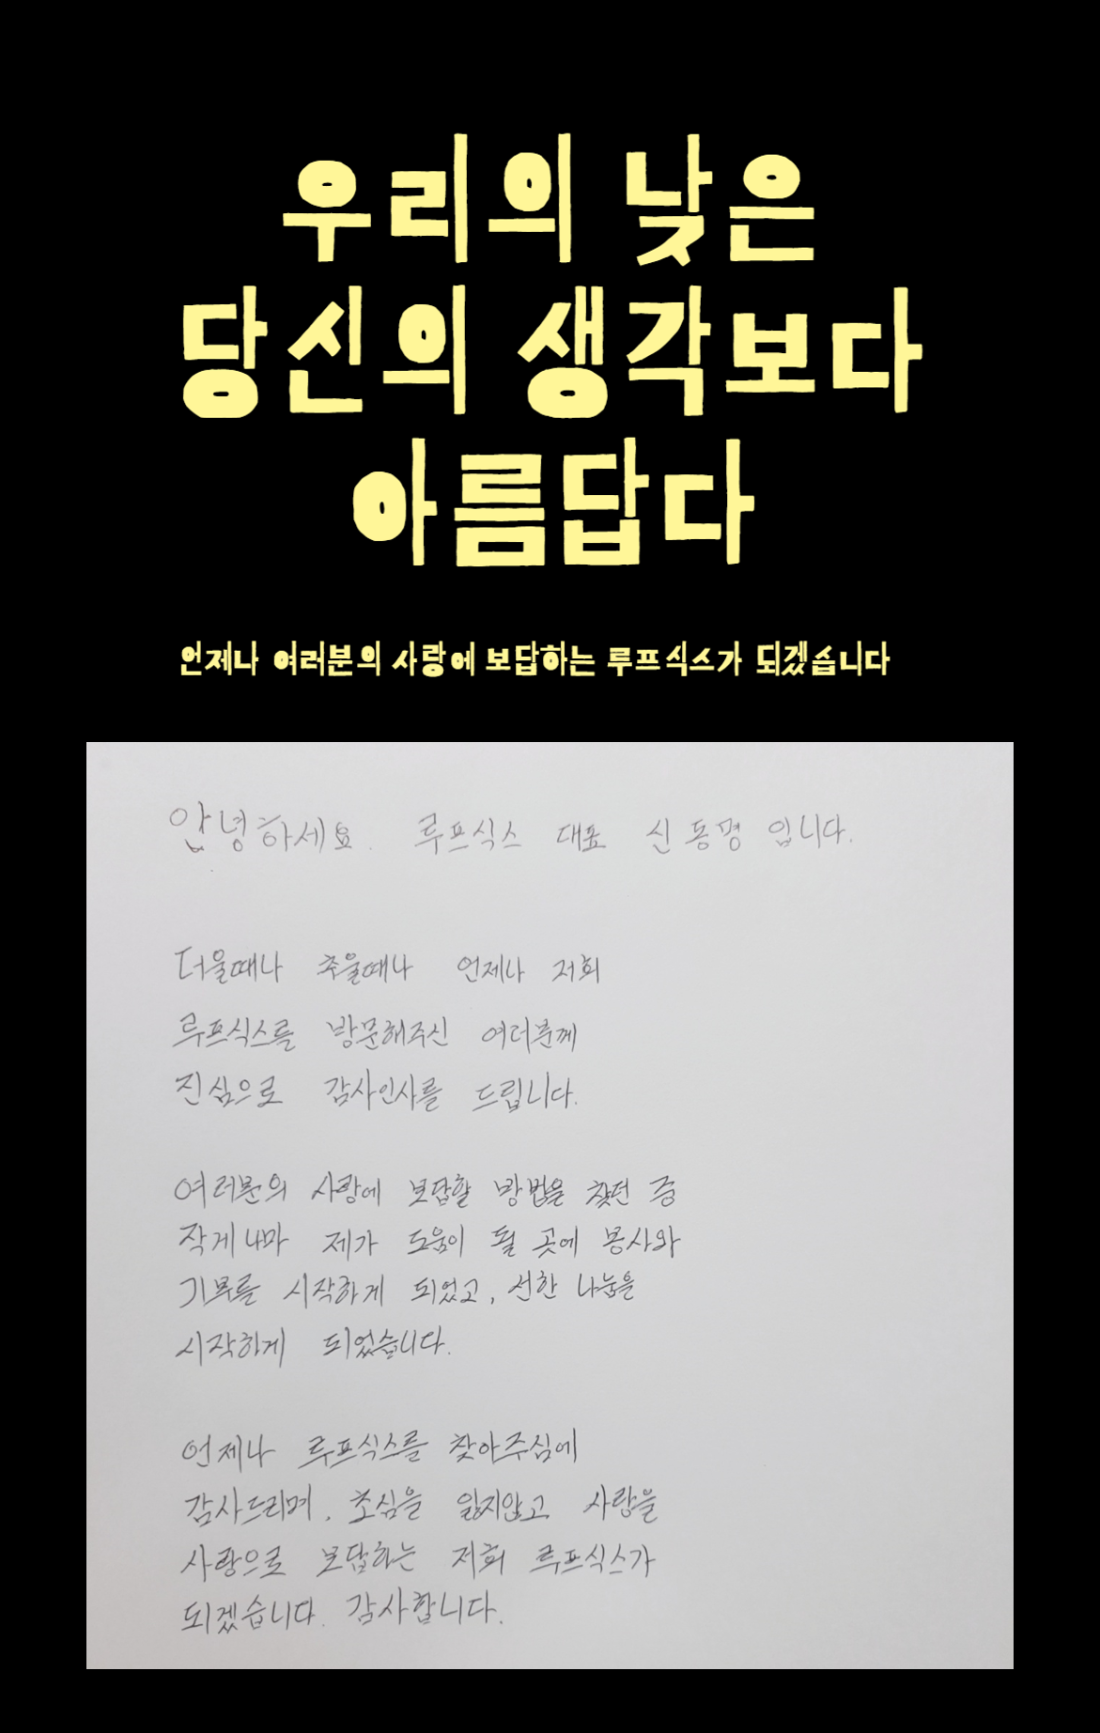 우리의 낮은
당신의 생각보다
아름답다
언제나 여러분의 사랑에 보답하는 루프식스가 되겠습니다
안녕하세요. 루프식스 대표 신동명 입니다.
더울때나 추울때나 언제나 저희
루프식스를 방문해주신 여러분께
진심으로 감사인사를 드립니다.
여러분의 사랑에 보답할 방법을 찾던 중
작게나마 제가 도움이 될 곳에 봉사와
기부를 시작하게 되었고, 선한 나눔을
시작하게 되었습니다.
언제나 루프식스를 찾아주심에
감사드리며, 초심을 잃지않고 사랑을
사랑으로 보답하는 저희 루프식스가
되겠습니다. 감사합니다.